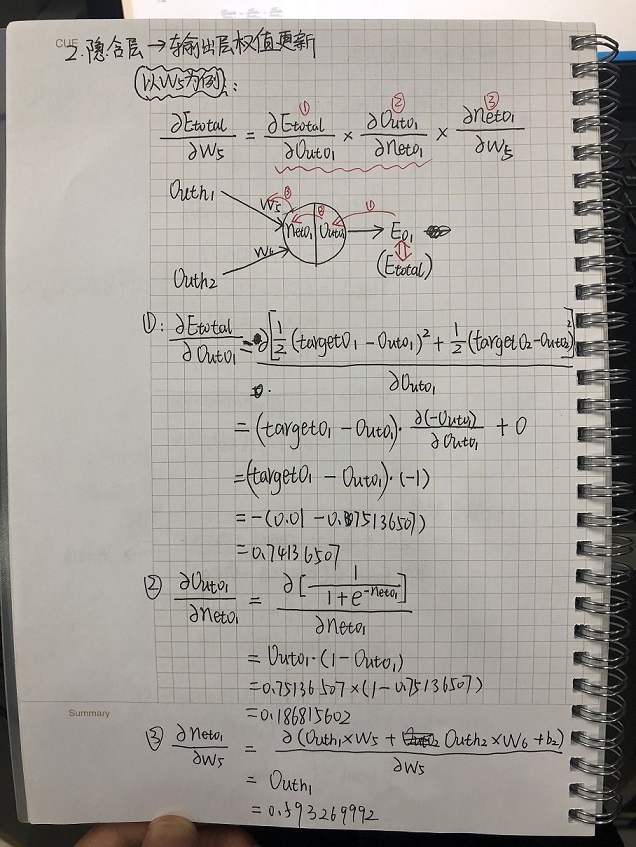 CUE
2.隐含层→输出层权值更新
(以W5为例):
∂Etotal/∂W5 = ∂Etotal/∂Outo1 × ∂Outo1/∂neto1 × ∂neto1/∂W5
① ② ③
Outh1
W5 ③ ② ①
neto1 Outo1 → Eo1
W6
Outh2
(Etotal)
①: ∂Etotal/∂Outo1 = ∂[1/2(targeto1 - Outo1)² + 1/2(targeto2 - Outo2)²]/∂Outo1
= (targeto1 - Outo1)·∂(-Outo1)/∂Outo1 + 0
= (targeto1 - Outo1)·(-1)
= -(0.01 - 0.75136507)
= 0.74136507
② ∂Outo1/∂neto1 = ∂[1/(1+e^-neto1)]/∂neto1
= Outo1·(1 - Outo1)
= 0.75136507×(1 - 0.75136507)
= 0.186815602
Summary
③ ∂neto1/∂W5 = ∂(Outh1×W5 + Outh2×W6 + b2)/∂W5
= Outh1
= 0.593269992